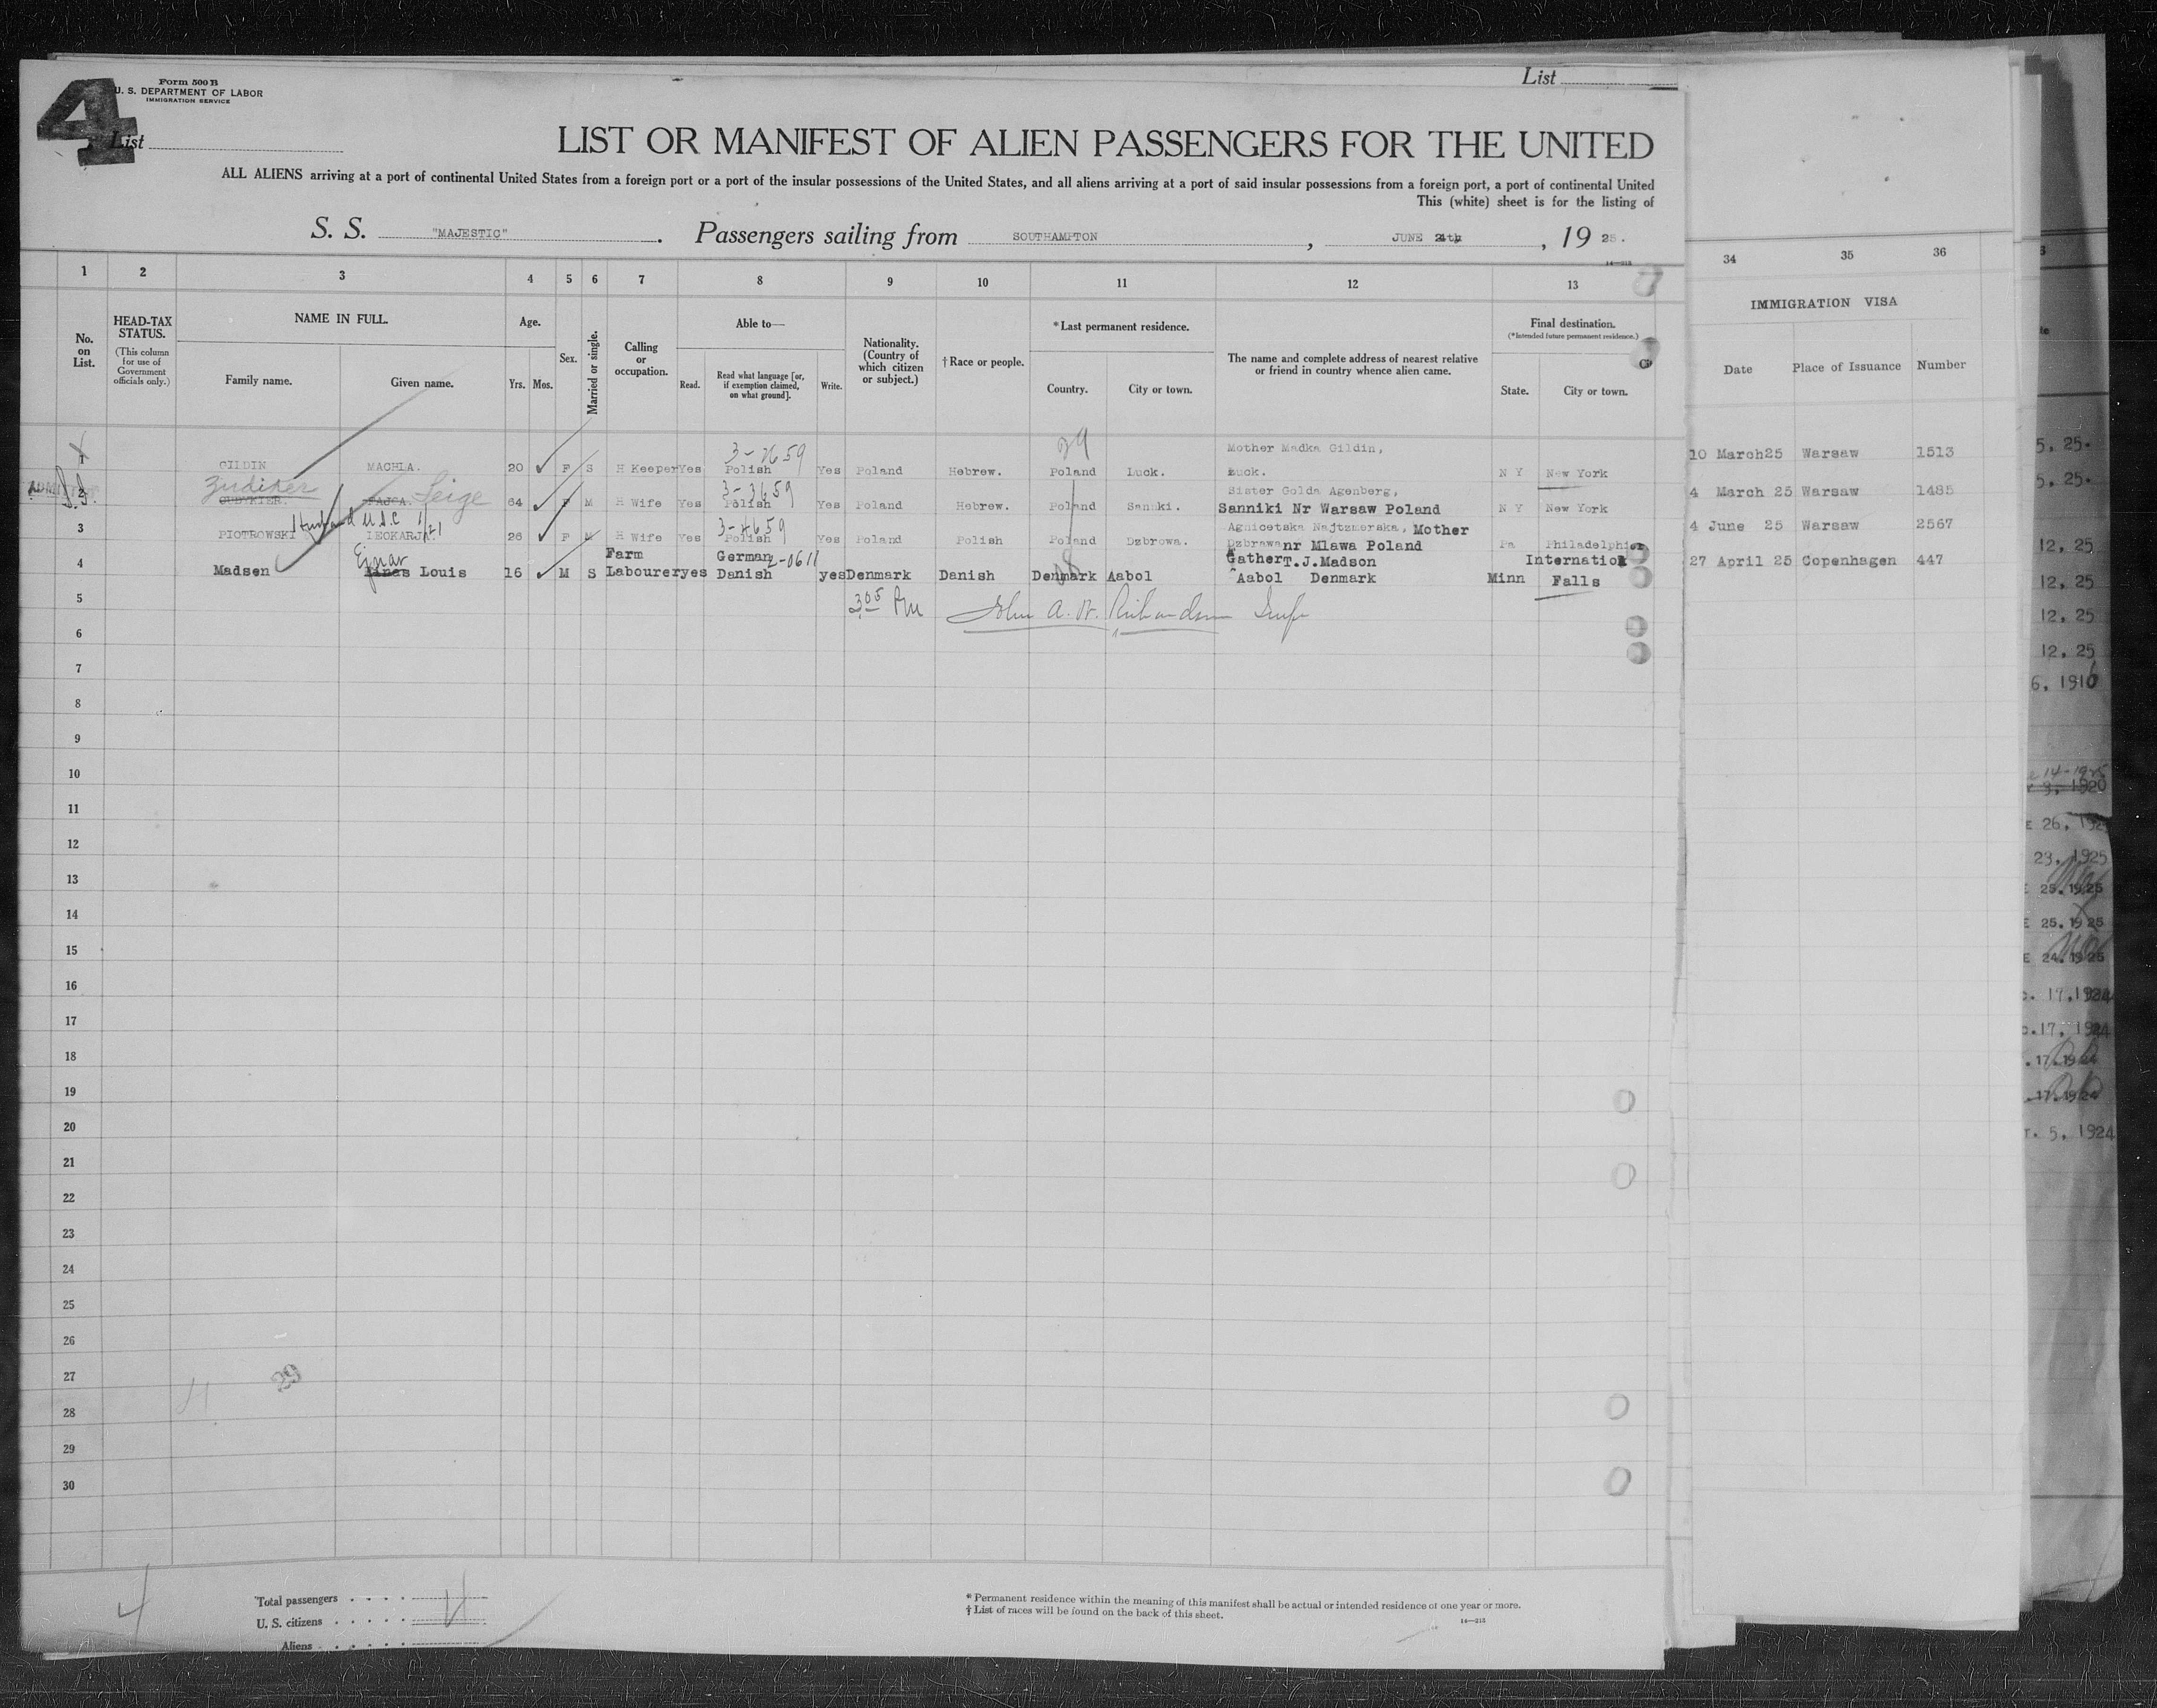 4
Form 500 B
U. S. DEPARTMENT OF LABOR
IMMIGRATION SERVICE
List
List
LIST OR MANIFEST OF ALIEN PASSENGERS FOR THE UNITED
ALL ALIENS arriving at a port of continental United States from a foreign port or a port of the insular possessions of the United States, and all aliens arriving at a port of said insular possessions from a foreign port, a port of continental United
This (white) sheet is for the listing of
S. S. "MAJESTIC" . Passengers sailing from SOUTHAMPTON , JUNE 24th , 19 25.
14—213
1 2 3 4 5 6 7 8 9 10 11 12 13 34 35 36
No. on List.
HEAD-TAX STATUS.
(This column for use of Government officials only.)
NAME IN FULL.
Family name. Given name.
Age.
Yrs. Mos.
Sex.
Married or single.
Calling or occupation.
Able to—
Read. Read what language [or, if exemption claimed, on what ground]. Write.
Nationality. (Country of which citizen or subject.)
†Race or people.
*Last permanent residence.
Country. City or town.
The name and complete address of nearest relative or friend in country whence alien came.
Final destination.
(*Intended future permanent residence.)
State. City or town.
IMMIGRATION VISA
Date Place of Issuance Number
29
3-2659
Mother Madka Gildin,
1 GILDIN MACHLA. 20 F S H Keeper Yes Polish Yes Poland Hebrew. Poland Luck. Luck. N Y New York 10 March25 Warsaw 1513
Zudiker Feige 3-3659
Sister Golda Agenberg,
2 GUDYKIER. FAJGA. 64 F M H Wife Yes Polish Yes Poland Hebrew. Poland Sanniki. Sanniki Nr Warsaw Poland N Y New York 4 March 25 Warsaw 1485
Husband U.S.C 3-4659
Agnicetska Najtzmerska, Mother
3 PIOTROWSKI LEOKARJA. 26 F M H Wife Yes Polish Yes Poland Polish Poland Dzbrowa. Dzbrawa nr Mlawa Poland Pa Philadelphia 4 June 25 Warsaw 2567
Ejnar Farm German 2-0611 Gather T.J.Madson Internation
4 Madsen Louis 16 M S Labourer yes Danish yes Denmark Danish Denmark Aabol Aabol Denmark Minn Falls 27 April 25 Copenhagen 447
3 05 PM John A. W. Richardson Insp
5
6
7
8
9
10
11
12
13
14
15
16
17
18
19
20
21
22
23
24
25
26
27
28
29
30
29
4
Total passengers
U. S. citizens
Aliens
* Permanent residence within the meaning of this manifest shall be actual or intended residence of one year or more.
† List of races will be found on the back of this sheet.
14—213
5, 25.
5, 25.
12, 25
12, 25
12, 25
12, 25
6, 1910
14-1925
9, 1920
26, 192
23, 1925
25, 1925
25, 1925
24, 1925
17, 1924
17, 1924
17, 1924
17, 1924
5, 1924